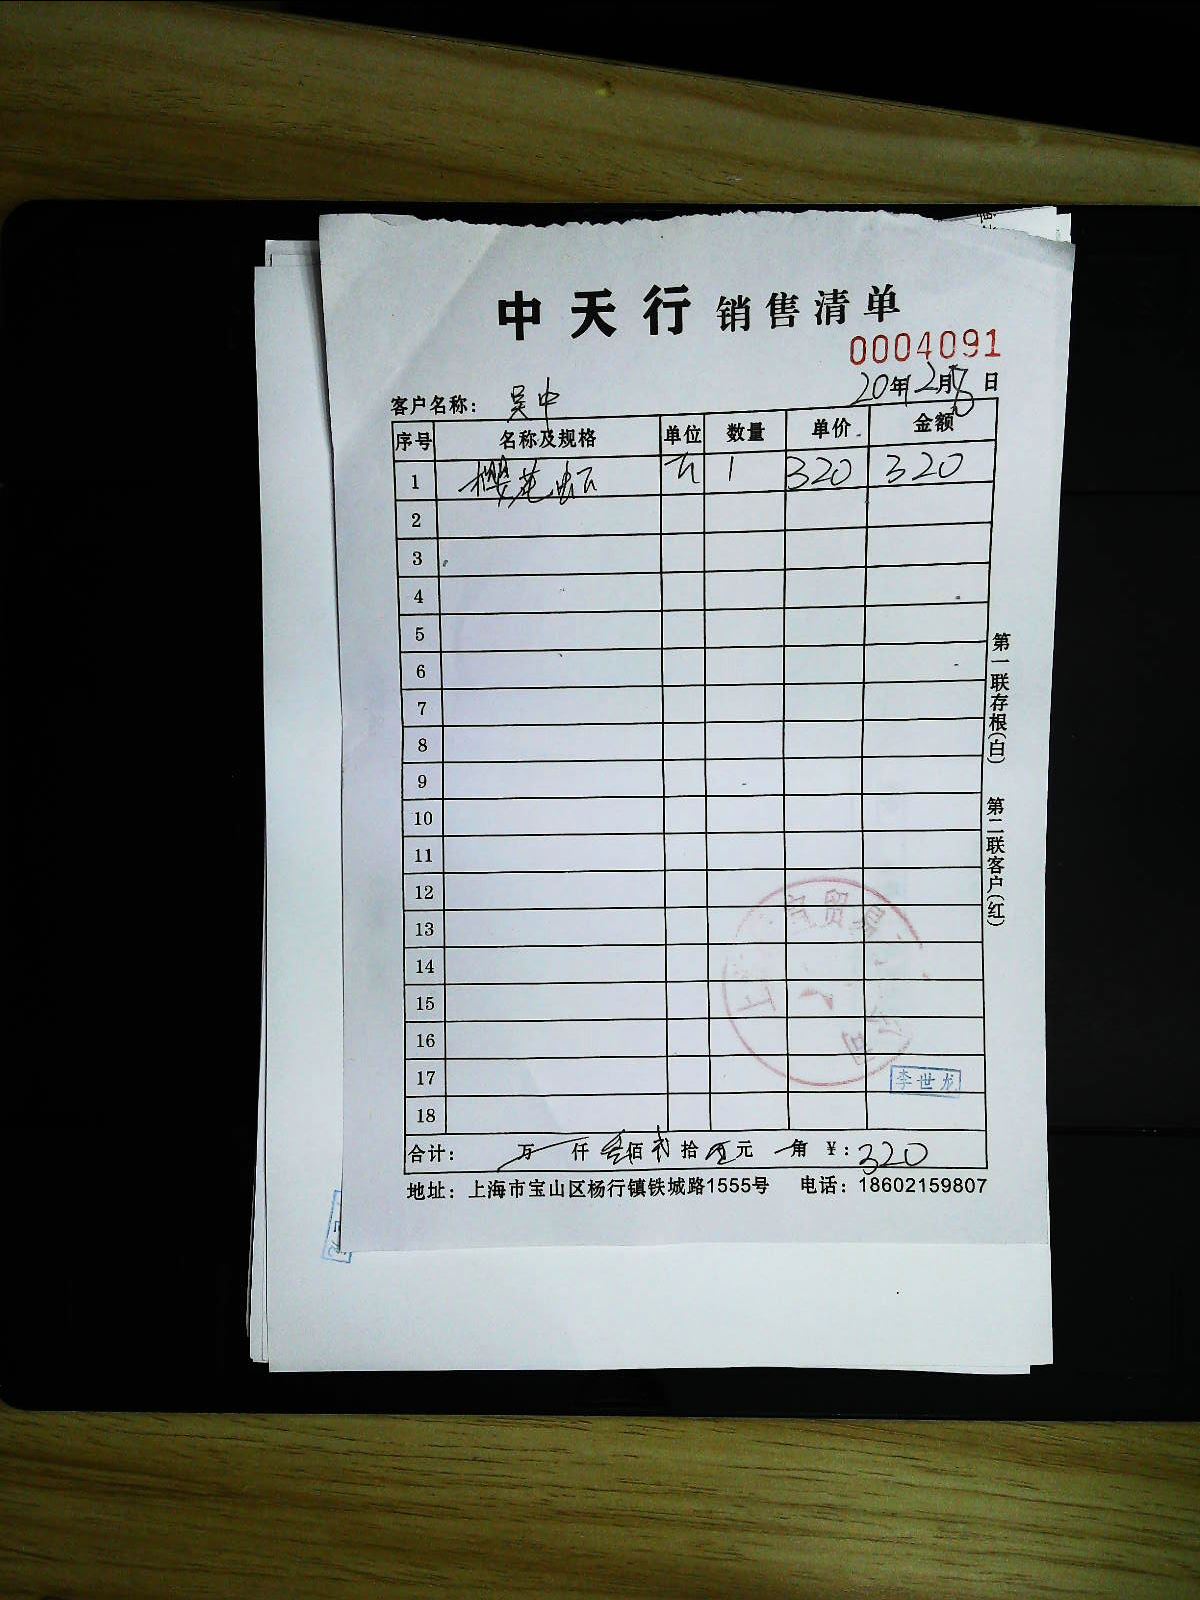 中天行 销售清单
0004091
20年12月 日
客户名称： 吴中
序号 名称及规格 单位 数量 单价 金额
1 樱花 1 320 320
2
3
4
5
6
7
8
9
10
11
12
13
14
15
16
17
18
贸易
上
司
李世龙
合计： 万 仟 叁佰 贰 拾 元 角 ￥: 320
地址：上海市宝山区杨行镇铁城路1555号 电话：18602159807
第一联存根(白)
第二联客户(红)